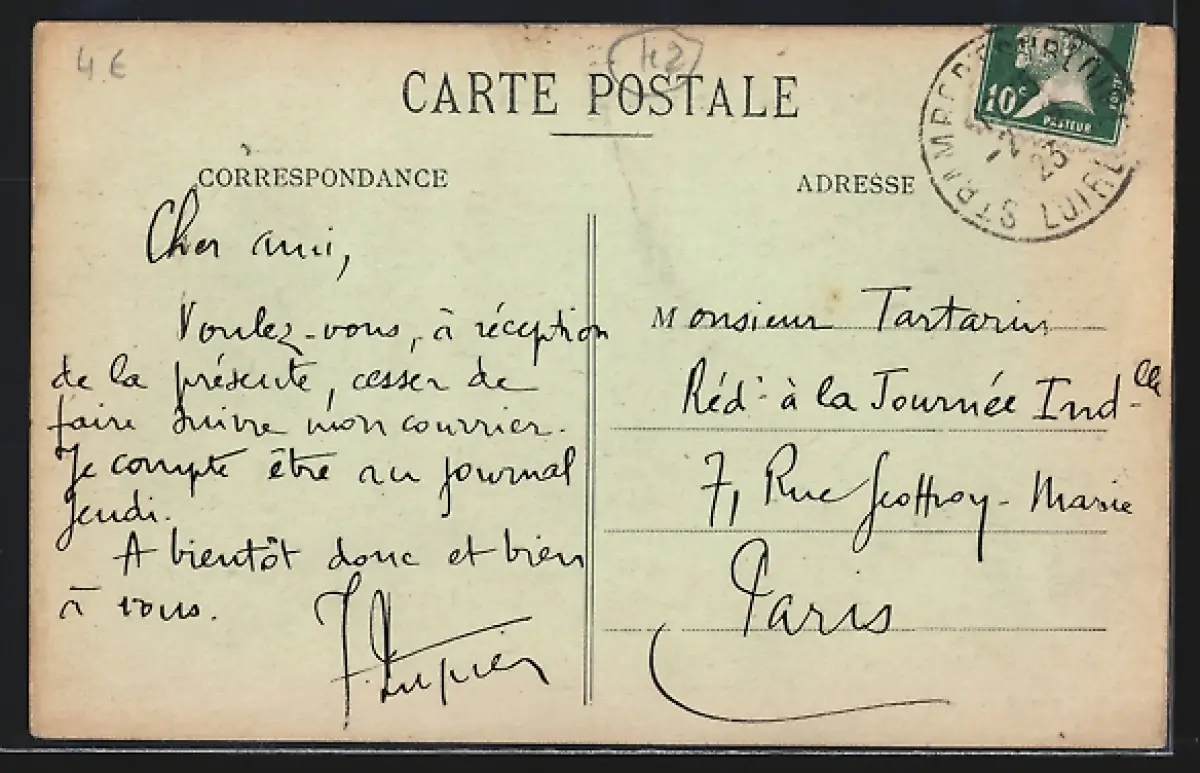 4 €
42
CARTE POSTALE
CORRESPONDANCE
Cher ami,
Voulez-vous, à réception
de la présente, cesser de
faire suivre mon courrier.
Je compte être au journal
jeudi.
A bientôt donc et bien
à vous.
ADRESSE
10c
PASTEUR
POSTES
LOIRE
25
Monsieur Tartarin
Réd. à la Journée Ind-lle
7, Rue Geoffroy-Marie
Paris